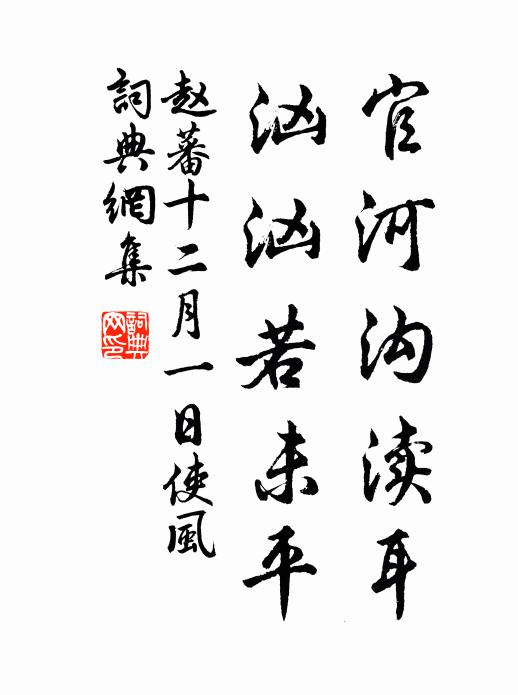 官河沟渎耳
汹汹若未平
赵蕃十二月一日使風
詞典網集
詞典網印